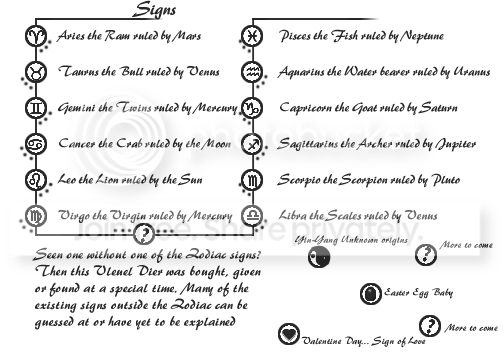 Signs
Aries the Ram ruled by Mars
Taurus the Bull ruled by Venus
Gemini the Twins ruled by Mercury
Cancer the Crab ruled by the Moon
Leo the Lion ruled by the Sun
Virgo the Virgin ruled by Mercury
Pisces the Fish ruled by Neptune
Aquarius the Water bearer ruled by Uranus
Capricorn the Goat ruled by Saturn
Sagittarius the Archer ruled by Jupiter
Scorpio the Scorpion ruled by Pluto
Libra the Scales ruled by Venus
?
Seen one without one of the Zodiac signs?
Then this Uleuel Dier was bought, given
or found at a special time. Many of the
existing signs outside the Zodiac can be
guessed at or have yet to be explained
Yin-Yang Unknown origins
? More to come
Easter Egg Baby
? More to come
Valentine Day... Sign of Love